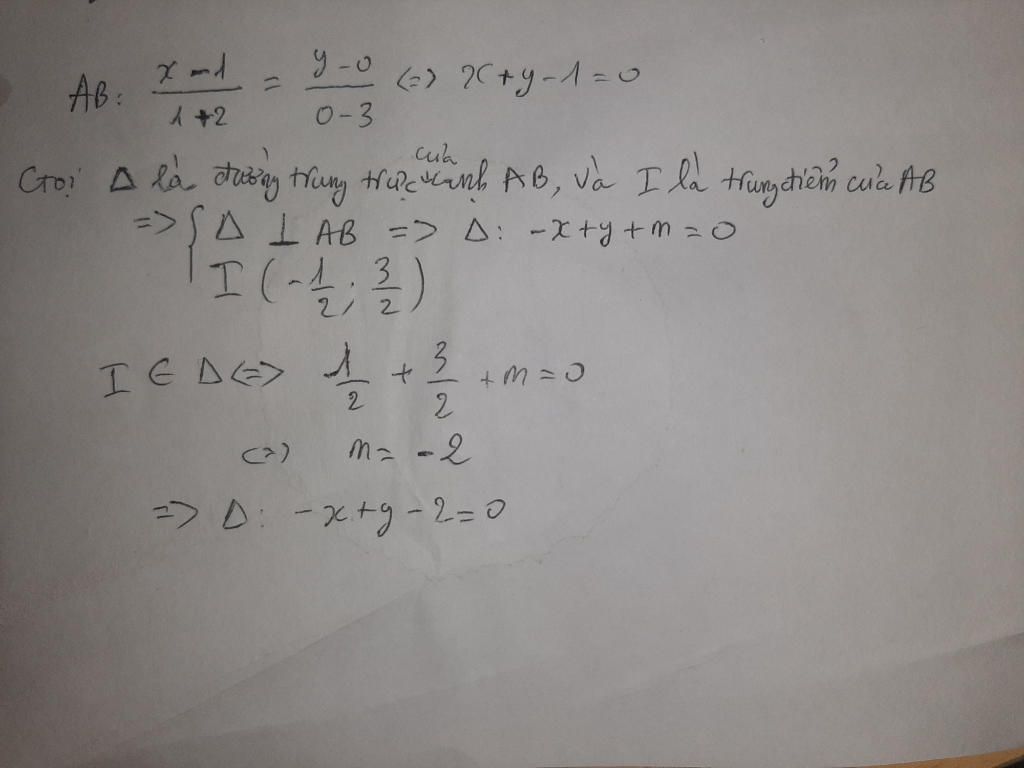 AB: \frac{x-1}{1+2} = \frac{y-0}{0-3} <=> x+y-1=0
Gọi Δ là đường trung trực của cạnh AB, và I là trung điểm của AB
=> { Δ ⊥ AB => Δ: -x+y+m=0
I (-\frac{1}{2}; \frac{3}{2})
I ∈ Δ <=> \frac{1}{2} + \frac{3}{2} + m = 0
<=> m = -2
=> Δ: -x+y-2=0